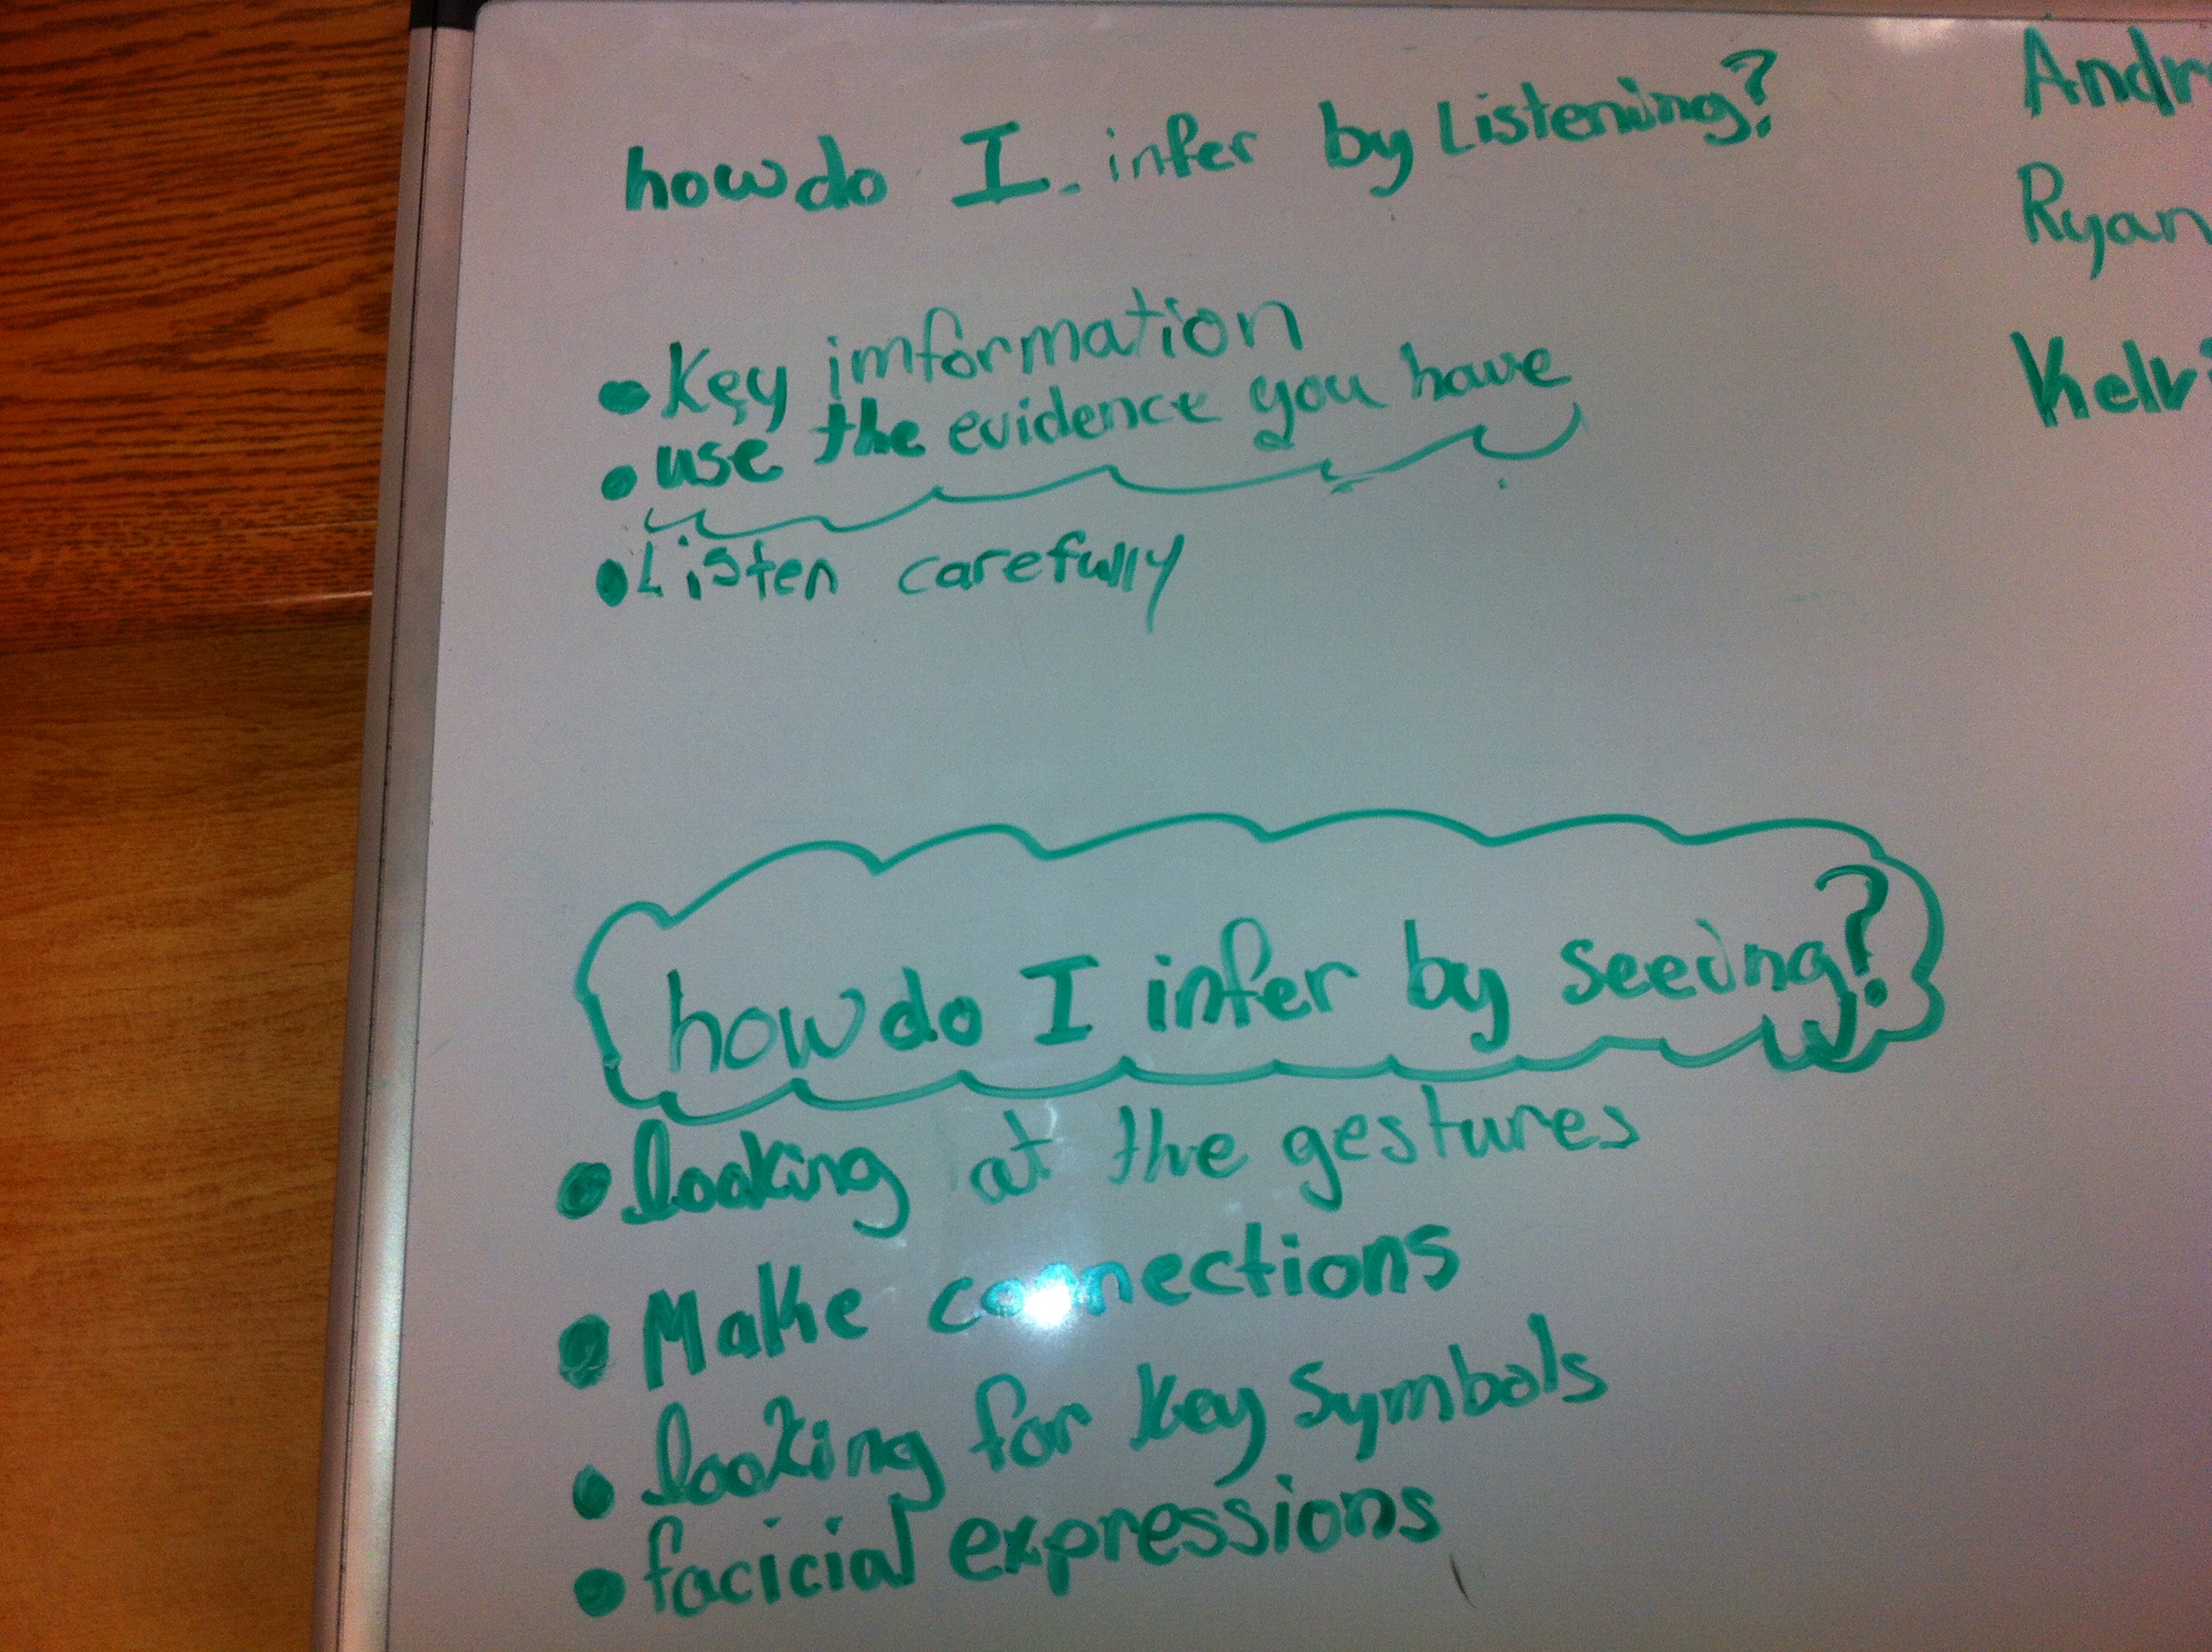 how do I infer by Listening?
• Key imformation
• use the evidence you have
• Listen carefully
how do I infer by seeing?
• looking at the gestures
• Make connections
• looking for key symbols
• facicial expressions
Andr
Ryan
Kelvi